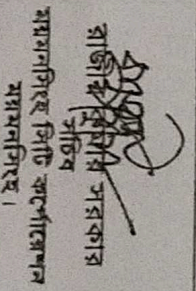 রাজীব কুমার সরকার
সচিব
ময়মনসিংহ সিটি কর্পোরেশন
ময়মনসিংহ।